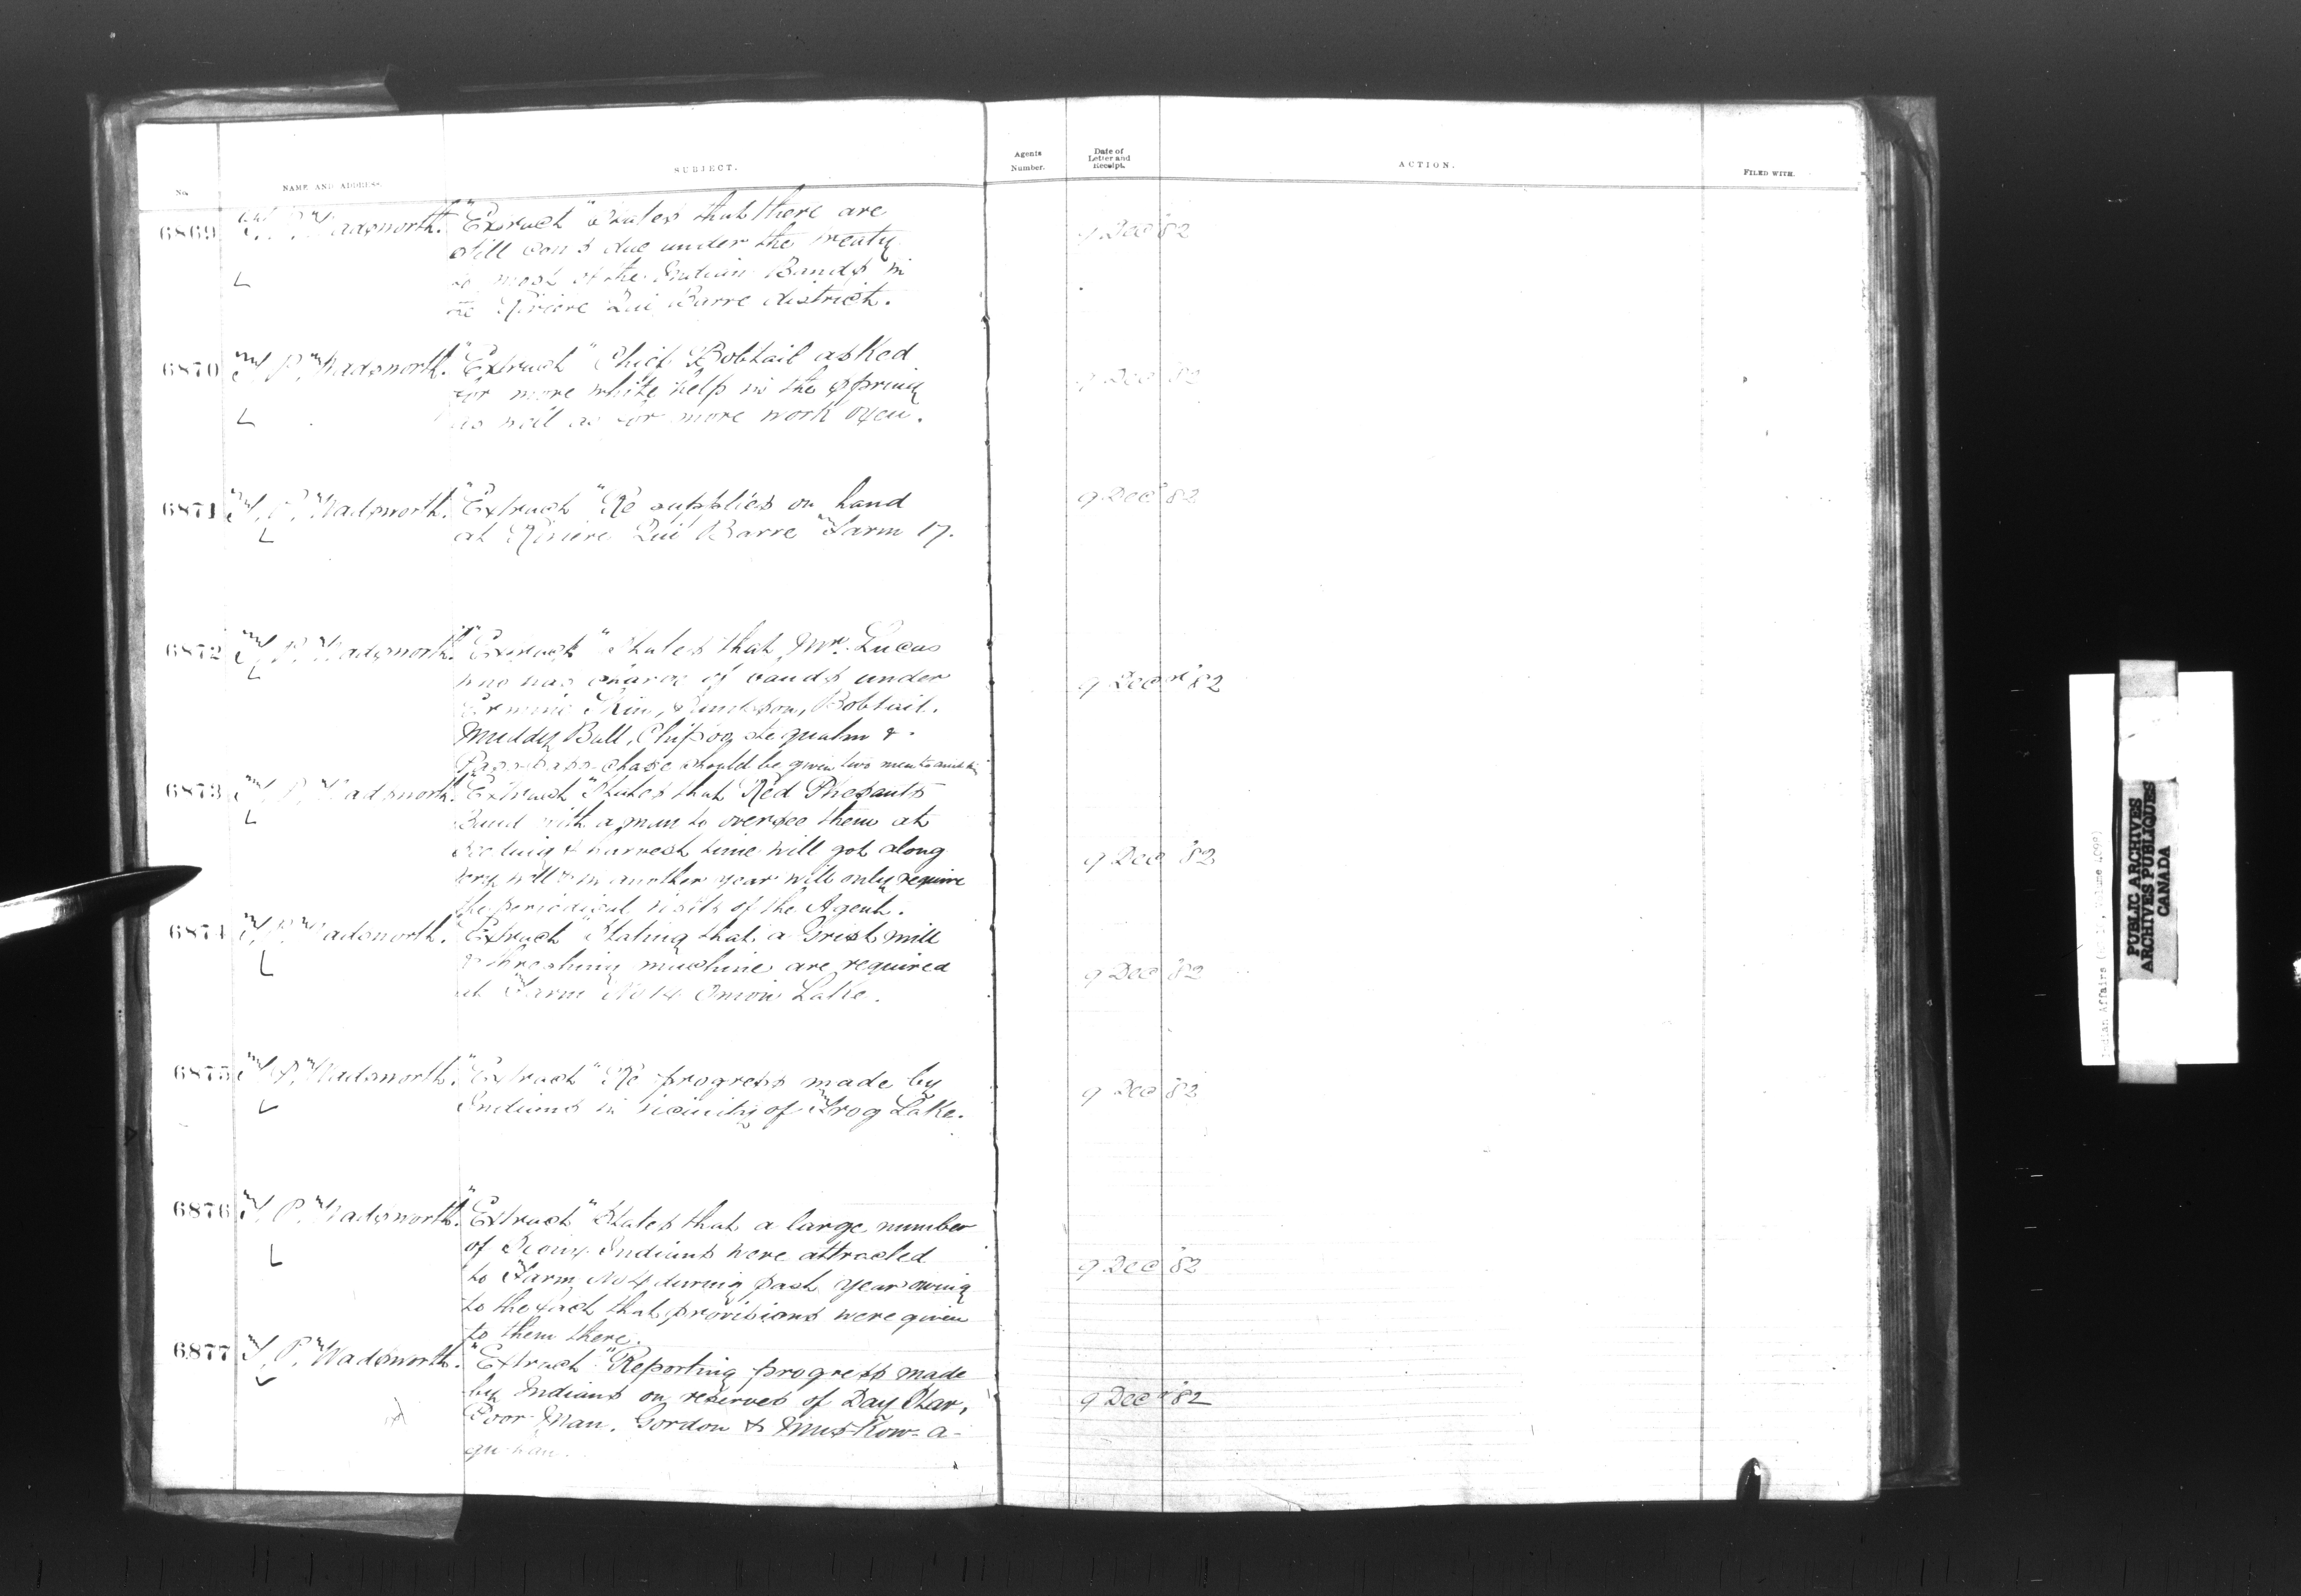 No.
NAME AND ADDRESS.
SUBJECT.
Agents
Number.
Date of
Letter and
Receipt.
ACTION.
FILED WITH.
6869 T. P. Wadsworth. "Extract" States that there are
still cows due under the treaty
to most of the Indian Bands in
the Riviere Qui Barre district.
9 Dec '82
6870 T. P. Wadsworth. "Extract" Chief Bobtail asked
for more white help in the spring
as well as for more work oxen.
9 Dec 82
6871 T. P. Wadsworth. "Extract" Re supplies on hand
at Riviere Qui Barre Farm 17.
9 Dec '82
6872 T. P. Wadsworth. "Extract" States that Mr. Lucas
who has charge of bands under
Ermine Skin, Sampson, Bobtail.
Muddy Bull, &
Pass-pass-chase should be given two men to
9 Dec '82
6873 T. P. Wadsworth. "Extract" States that Red Phesants
Band with a man to oversee them at
seeding & harvest time will get along
very well & in another year will only require
the periodical visits of the Agent.
9 Dec '82
6874 T. P. Wadsworth. "Extract" Stating that a Grist mill
& threshing machine are required
at Farm No 14 Onion Lake.
9 Dec '82
6875 T. P. Wadsworth. "Extract" Re progress made by
Indians in vicinity of Frog Lake.
9 Dec '82
6876 T. P. Wadsworth. "Extract" States that a large number
of Sioux Indians were attracted
to Farm No 4 during past year owing
to the fact that provisions were given
to them there.
9 Dec '82
6877 T. P. Wadsworth. "Extract" Reporting progress made
by Indians on reserves of Day Star,
Poor Man, Gordon & Mus-Kow-a-
9 Dec '82
PUBLIC ARCHIVES
ARCHIVES PUBLIQUES
CANADA